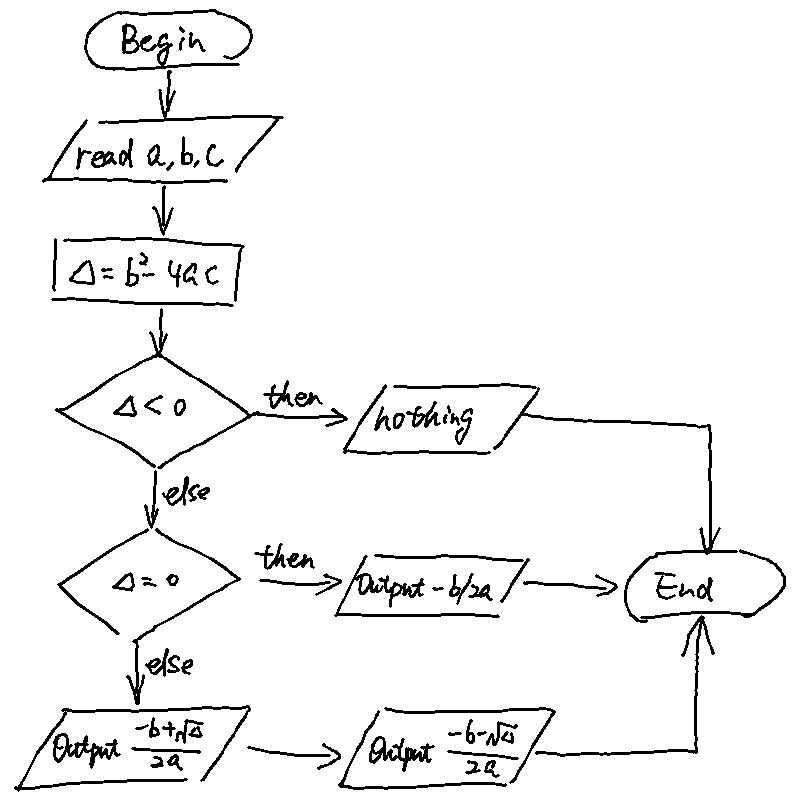 Begin
read a, b, c
Δ = b² - 4ac
Δ < 0
then
nothing
else
Δ = 0
then
Output - b/2a
End
else
Output (-b+√Δ)/2a
Output (-b-√Δ)/2a